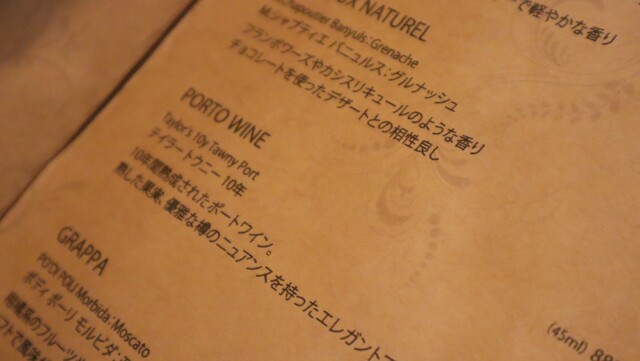 で軽やかな香り
NATUREL
Chapoutier Banyuls : Grenache
M.シャプティエ バニュルス：グルナッシュ
フランボワーズやカシスリキュールのような香り
チョコレートを使ったデザートとの相性良し
PORTO WINE
Taylor's 10y Tawny Port
テイラー トウニー 10年
10年間熟成されたポートワイン。
熟した果実、優雅な樽のニュアンスを持ったエレガント
GRAPPA
PO'DI POLI Morbida : Moscato
ポディ ポーリ モルビダ：
柑橘系のフルーツ
(45ml)